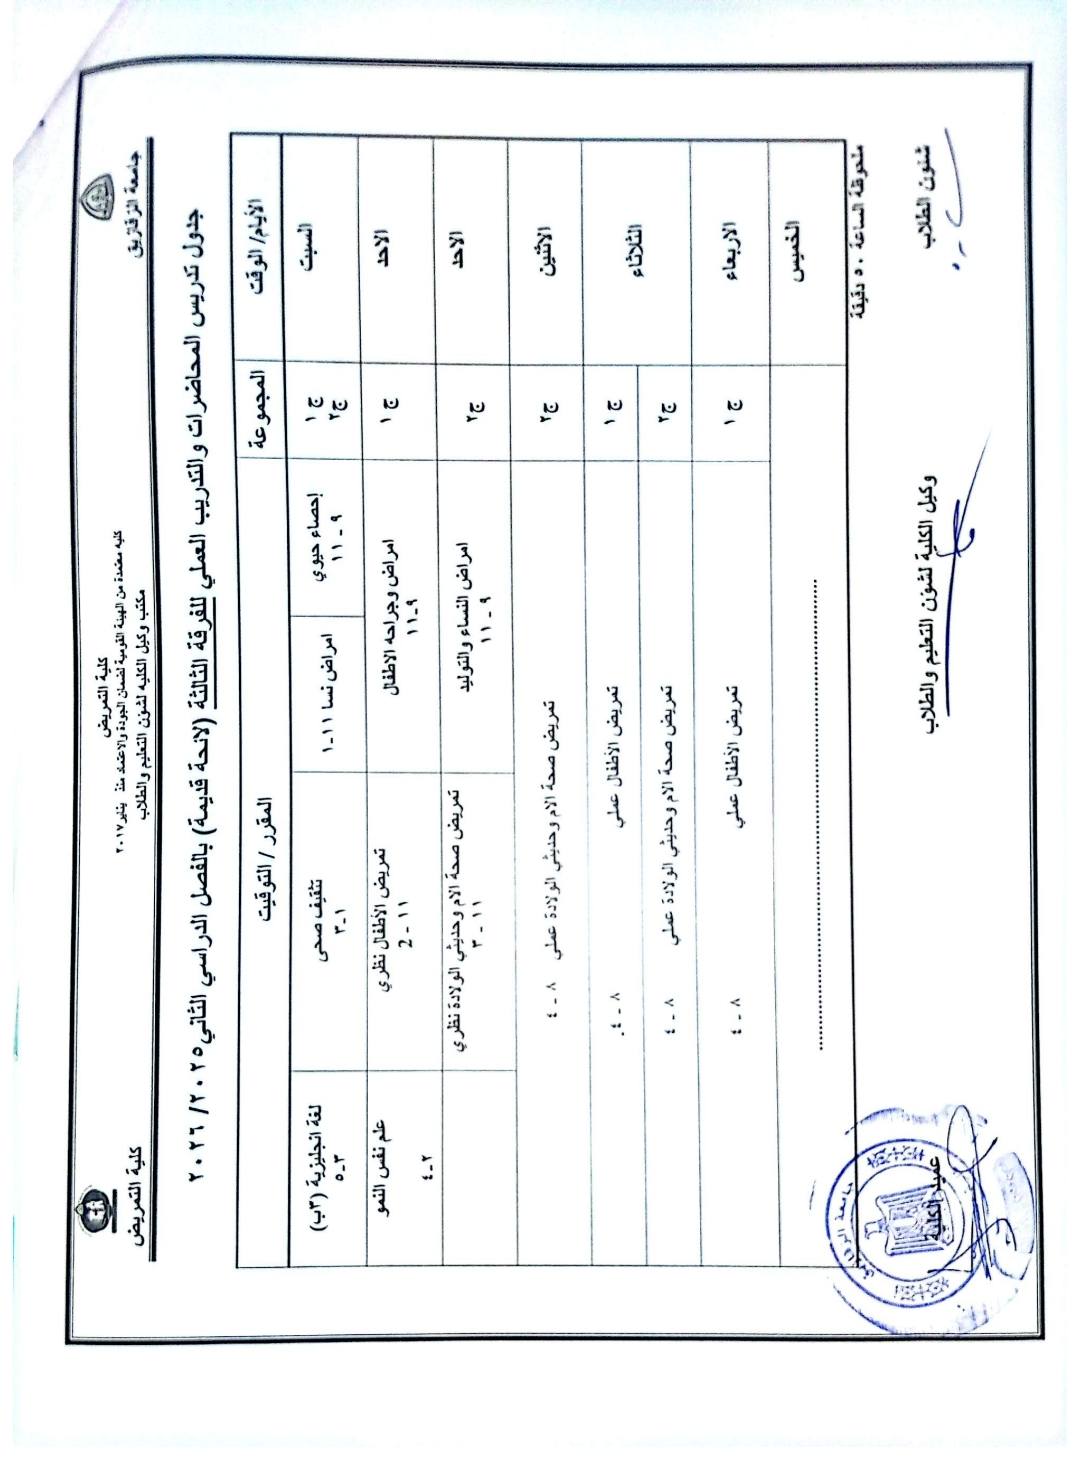 جامعة الزقازيق
كلية التمريض
كلية التمريض
كلية معتمدة من الهيئة القومية لضمان الجودة والاعتماد منذ يناير ٢٠١٧
مكتب وكيل الكلية لشئون التعليم والطلاب
جدول تدريس المحاضرات والتدريب العملي للفرقة الثالثة (لائحة قديمة) بالفصل الدراسي الثاني ٢٠٢٥/ ٢٠٢٦
الأيام/ الوقت المجموعة المقرر / التوقيت
السبت ج ١ إحصاء حيوي امراض نسا ١١-١ تثقيف صحى لغة انجليزية (٣ب)
ج٢ ٩ - ١١ ١-٣ ٣-٥
الاحد ج ١ امراض وجراحه الاطفال تمريض الأطفال نظري علم نفس النمو
٩-١١ ١١ - 2 ٢-٤
الاحد ج٢ امراض النساء والتوليد تمريض صحة الام وحديثي الولادة نظري
٩ - ١١ ١١ - ٣
الاثنين ج٢ تمريض صحة الام وحديثي الولادة عملي ٨ - ٤
الثلاثاء ج ١ تمريض الأطفال عملي ٨ - ٤.
ج٢ تمريض صحة الام وحديثي الولادة عملي ٨ - ٤
الاربعاء ج ١ تمريض الأطفال عملي ٨ - ٤
الخميس
ملحوظة الساعة ٥٠ دقيقة
شئون الطلاب وكيل الكلية لشؤن التعليم والطلاب عميد الكلية